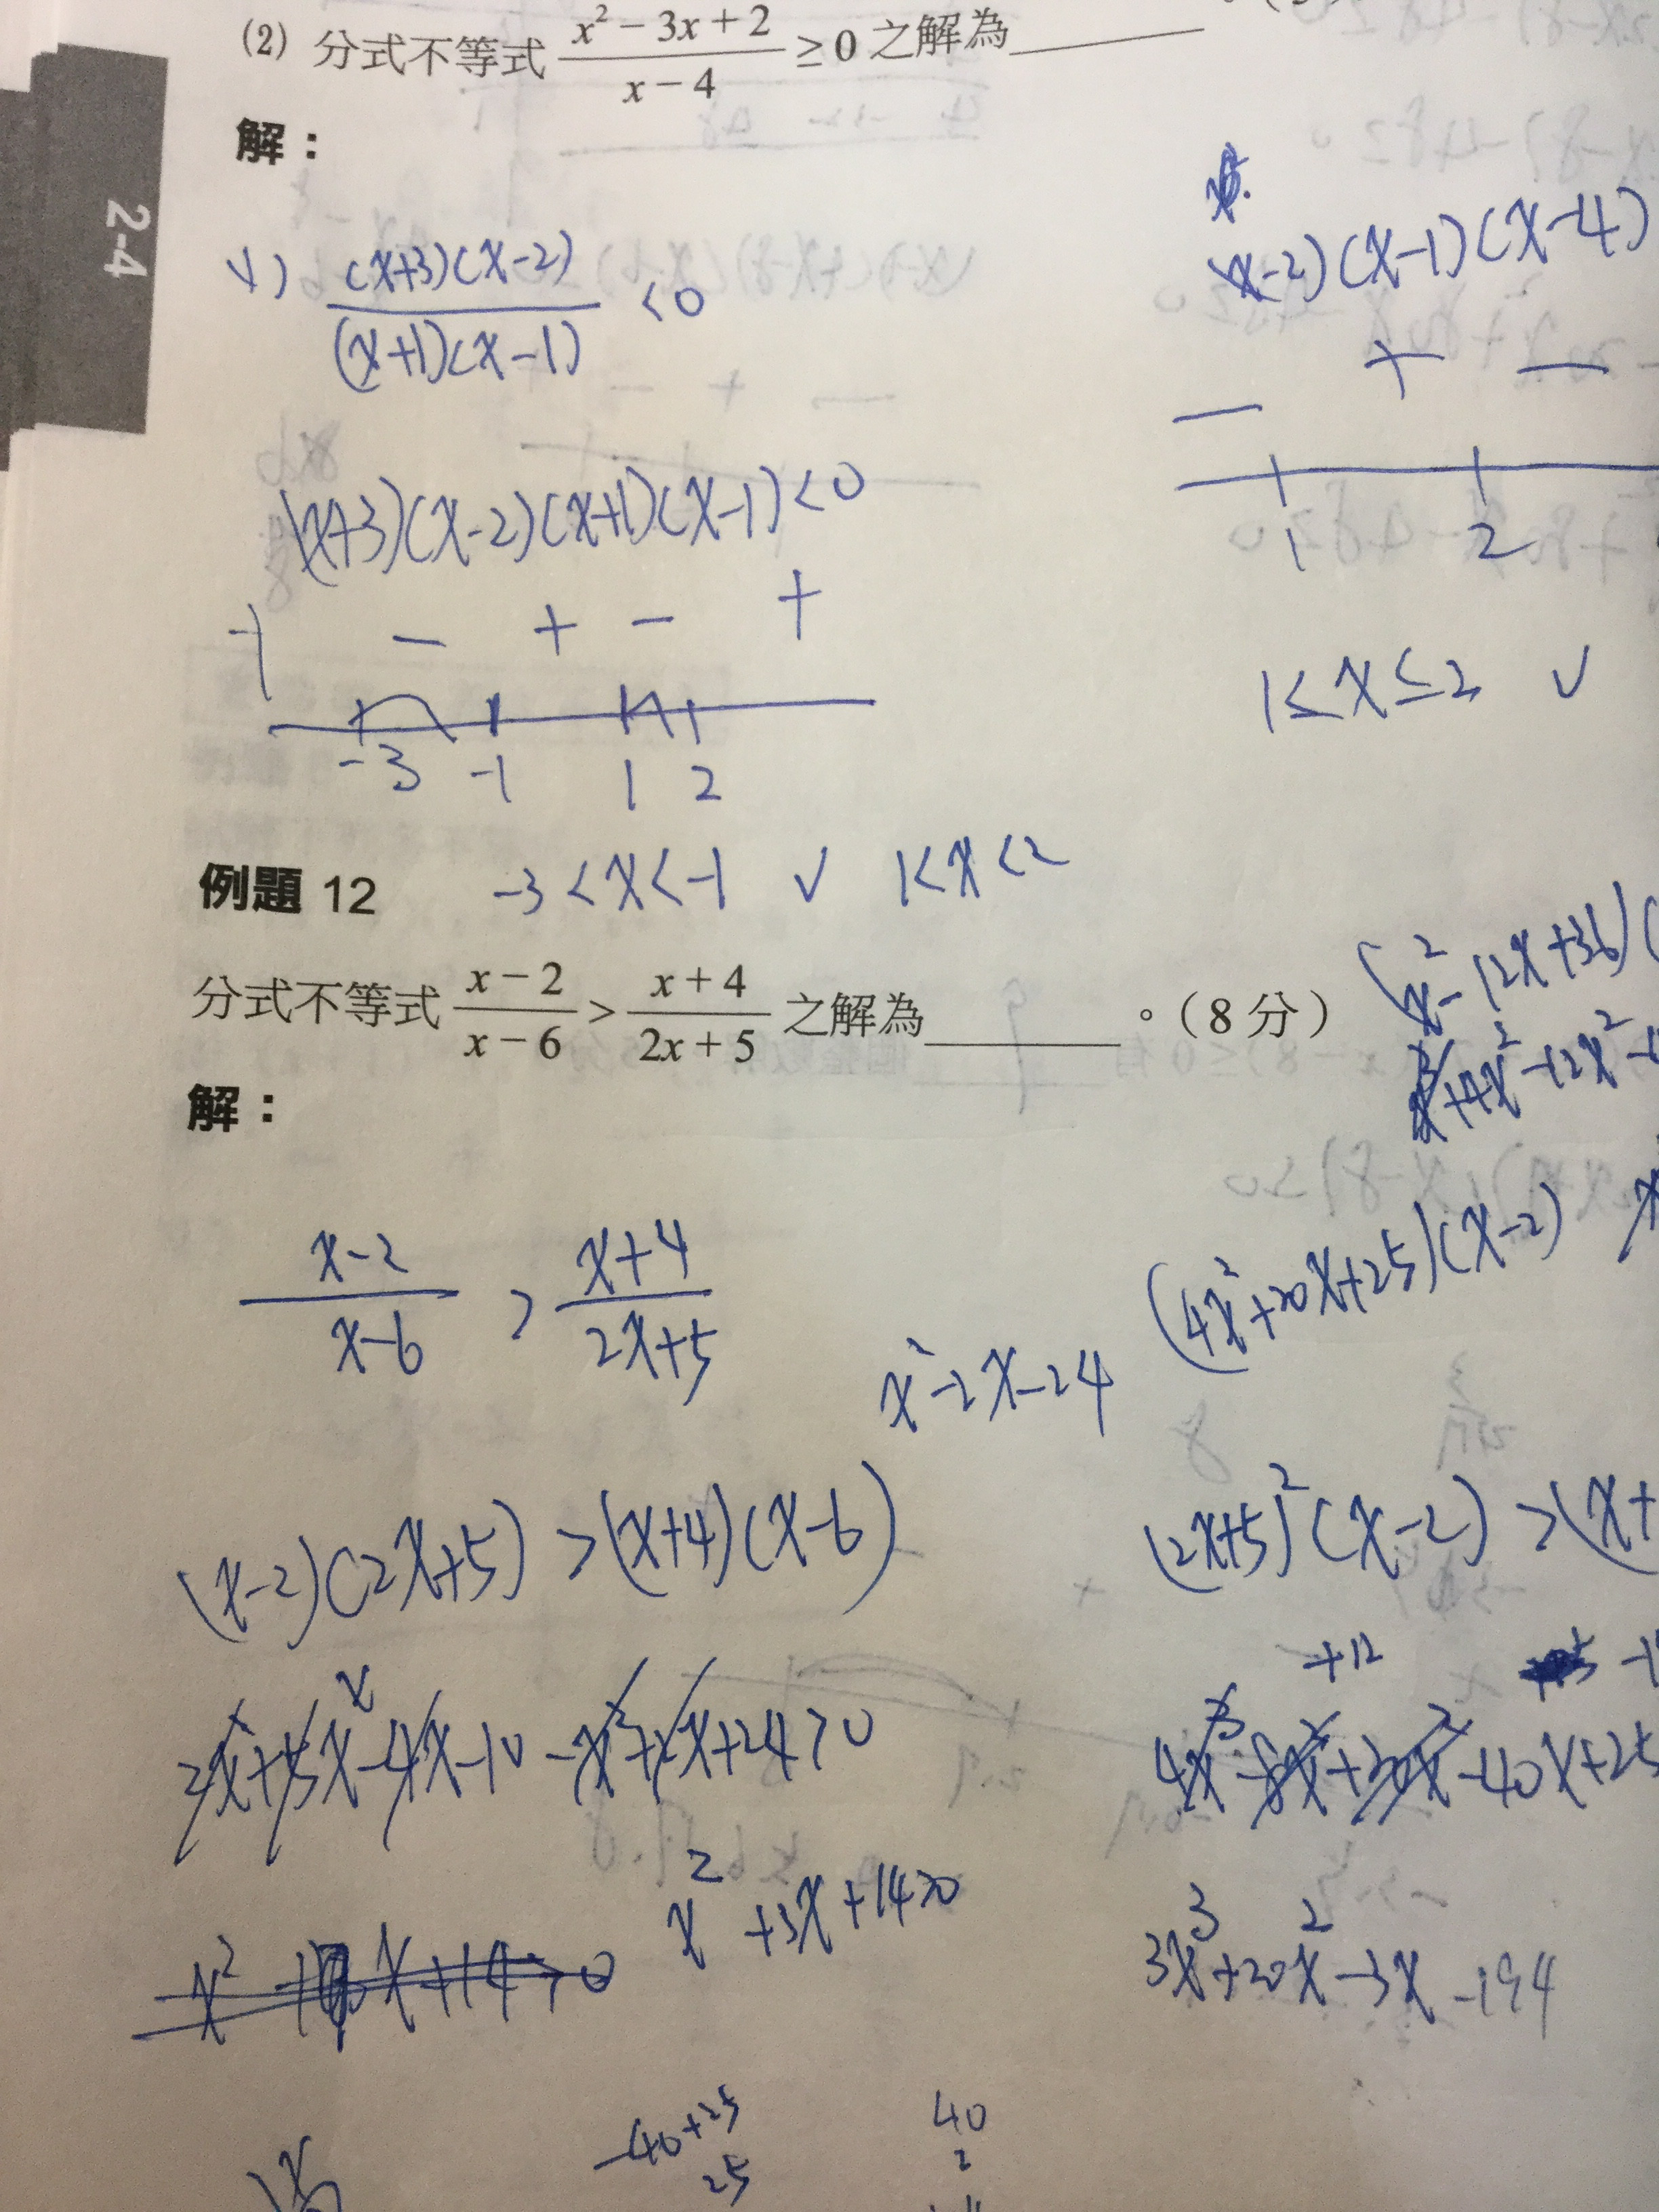 (2) 分式不等式 \frac{x^2-3x+2}{x-4} ≥ 0 之解為________
解：
2-4
\frac{(x+3)(x-2)}{(x+1)(x-1)} < 0
(x-2)(x-1)(x-4)
- + -
1 2
(x+3)(x-2)(x+1)(x-1)<0
+ - + - +
-3 -1 1 2
1≤x≤2 ∨
-3<x<-1 ∨ 1<x<2
例題 12
分式不等式 \frac{x-2}{x-6} > \frac{x+4}{2x+5} 之解為________。（8 分）
解：
(x^2-12x+36)(
+4x^2-12x^2-
\frac{x-2}{x-6} > \frac{x+4}{2x+5}
(4x^2+20x+25)(x-2)
x^2-2x-24
(x-2)(2x+5)>(x+4)(x-6)
(2x+5)^2(x-2)>(x+
2x^2+5x-4x-10-x^2+2x+24>0
+12
4x^3-8x^2+20x^2-40x+25
x^2+3x+14>0
x^2 x+14>0
3x^3+20x^2-3x-194
-40+25
25
40
2